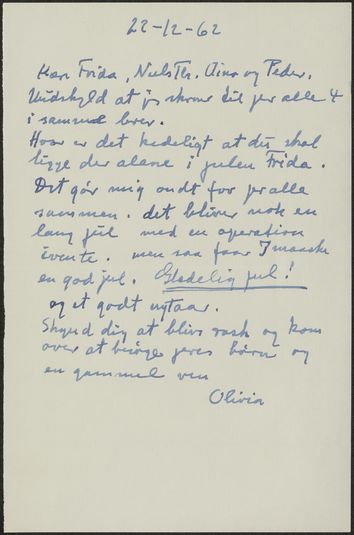 22-12-62
Kære Frida, Niels Th., Aino og Peder.
Undskyld at jeg skriver til jer alle 4
i samme brev.
Hvor er det kedeligt at du skal
ligge der alene i julen Frida.
Det gør mig ondt for jer alle
sammen. det bliver nok en
lang jul med en operation
ivente. men saa faar I maaske
en god jul. Glædelig jul!
og et godt nytaar.
Skynd dig at bliv rask og kom
over at besøge jeres børn og
en gammel ven
Olivia